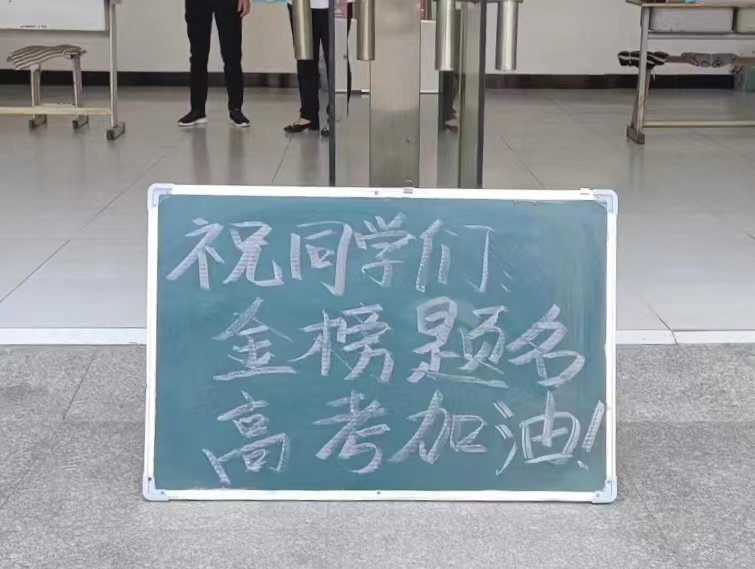 祝同学们:
金榜题名
高考加油!